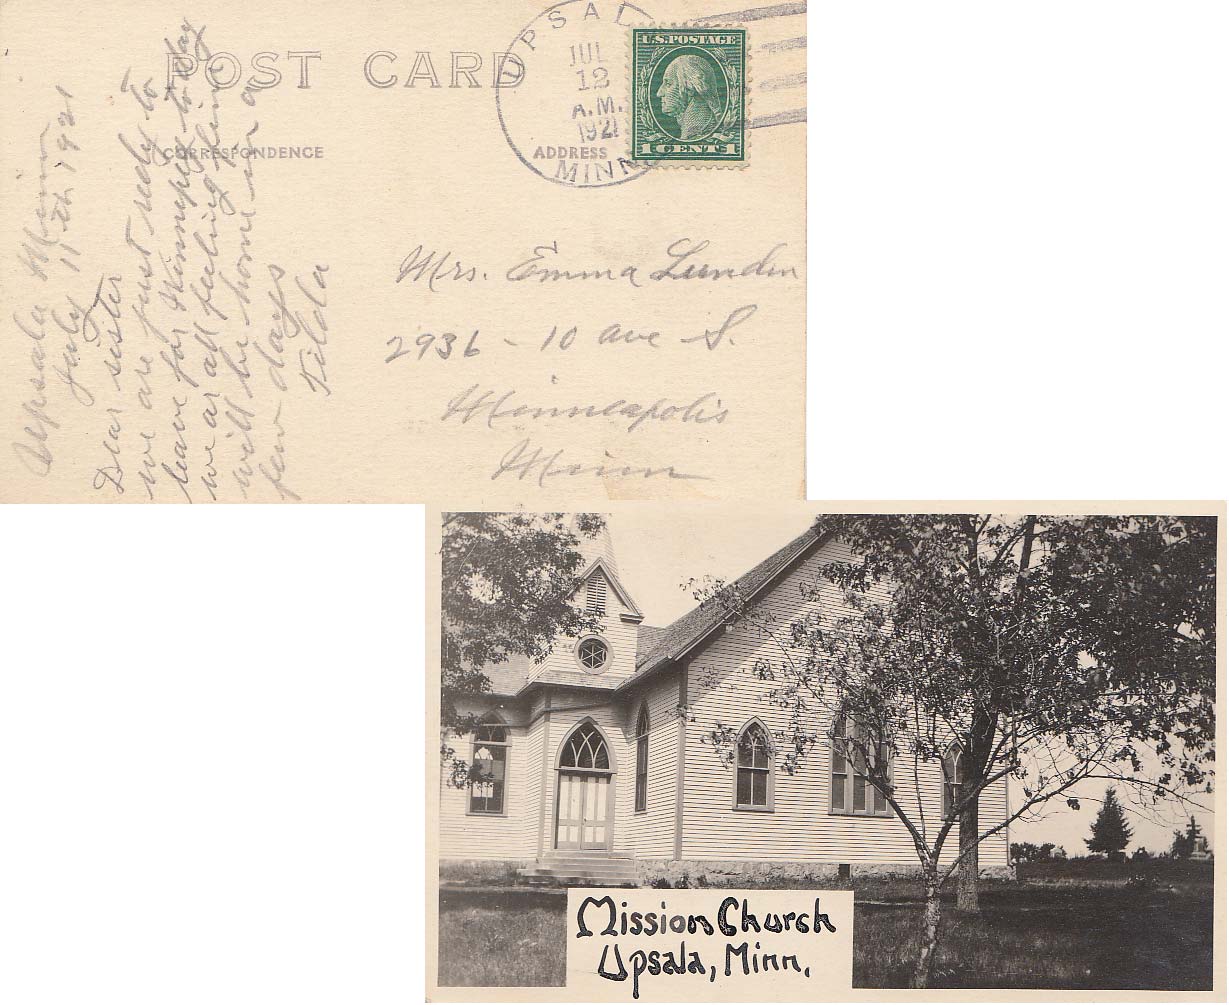 POST CARD
CORRESPONDENCE
ADDRESS
UPSALA
JUL
12
A.M.
1921
MINN
U.S. POSTAGE
1 CENT 1
Upsala Minn
July 11th 1921
Dear sister
we are just redy to
leave for Winnipeg to day
we ar all feeling fine
will be home in a
few days
Tilda
Mrs. Emma Lunden
2936 - 10 ave S.
Minneapolis
Minn
Mission Church
Upsala, Minn.